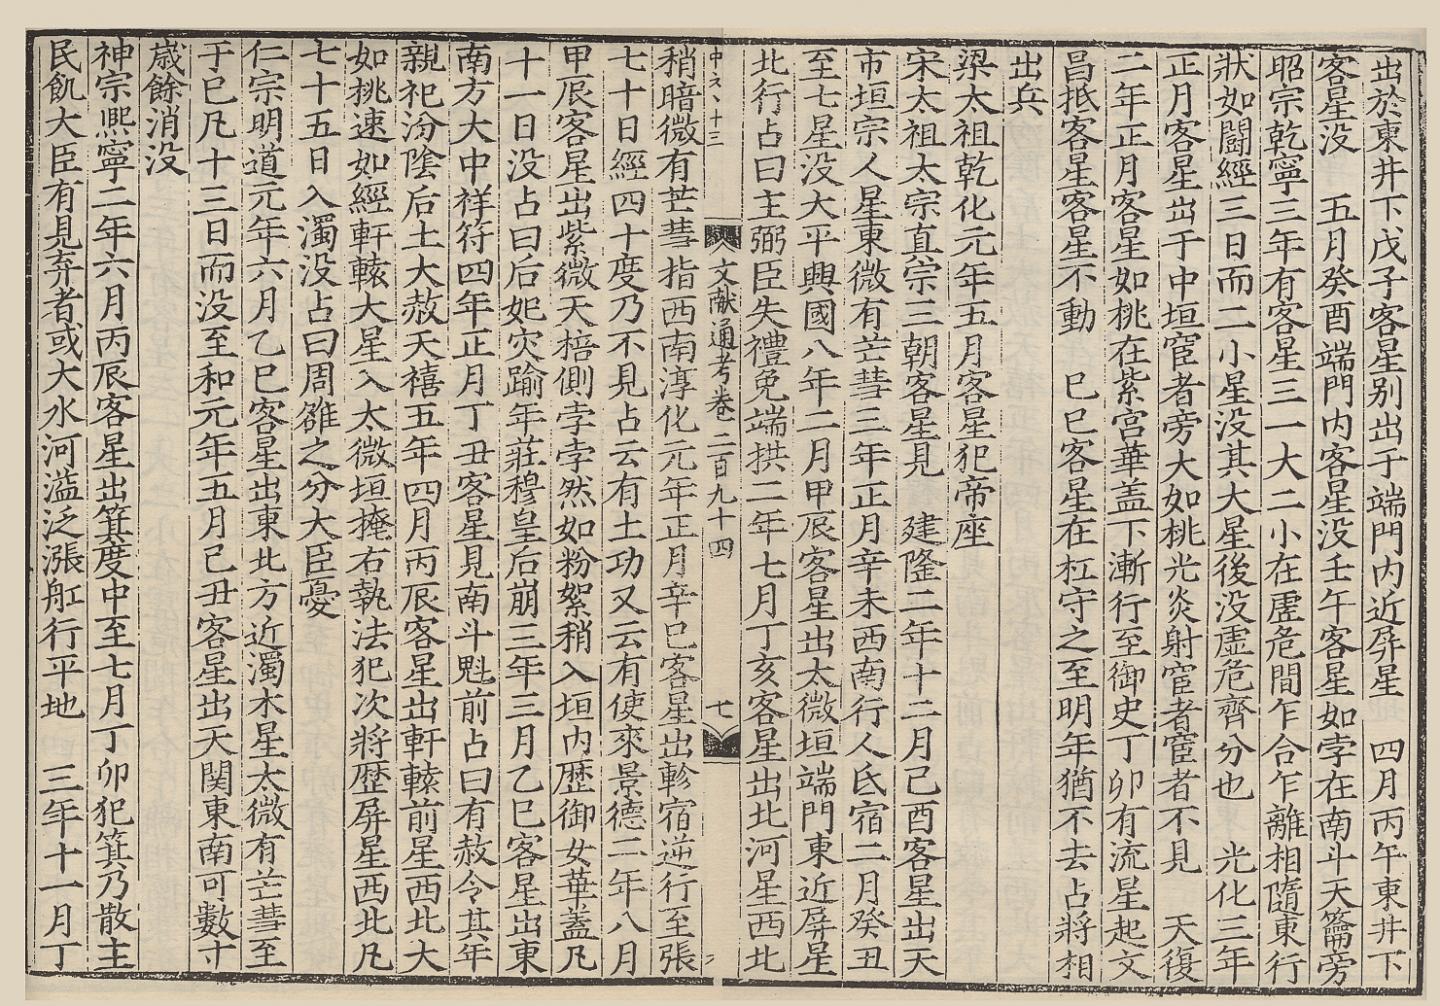 出於東井下戊子客星别出于端門内近屏星　四月丙午東井下
客星没　五月癸酉端門内客星没壬午客星如孛在南斗天籥旁
昭宗乾寧三年有客星三一大二小在虛危間乍合乍離相隨東行
狀如鬭經三日而二小星没其大星後没虛危齊分也　光化三年
正月客星出于中垣宦者旁大如桃光炎射宦者宦者不見　天復
二年正月客星如桃在紫宫華盖下漸行至御史丁卯有流星起文
昌抵客星客星不動　巳巳客星在杠守之至明年猶不去占將相
出兵
梁太祖乾化元年五月客星犯帝座
宋太祖太宗真宗三朝客星見　建隆二年十二月己酉客星出天
市垣宗人星東微有芒彗三年正月辛未西南行入氐宿二月癸丑
至七星没大平興國八年二月甲辰客星出太微垣端門東近屏星
北行占曰主弼臣失禮免端拱二年七月丁亥客星出北河星西北
文献通考卷二百九十四
七
稍暗微有芒彗指西南淳化元年正月辛巳客星出軫宿逆行至張
七十日經四十度乃不見占云有土功又云有使來景德二年八月
甲辰客星出紫微天棓側孛孛然如粉絮稍入垣内歷御女華蓋凡
十一日没占曰后妃灾踰年莊穆皇后崩三年三月乙巳客星出東
南方大中祥符四年正月丁丑客星見南斗魁前占曰有赦令其年
親祀汾陰后土大赦天禧五年四月丙辰客星出軒轅前星西北大
如桃速如經軒轅大星入太微垣掩右執法犯次將歷屏星西北凡
七十五日入濁没占曰周雒之分大臣憂
仁宗明道元年六月乙巳客星出東北方近濁木星太微有芒彗至
于巳凡十三日而没至和元年五月己丑客星出天関東南可數寸
歲餘消没
神宗熙寧二年六月丙辰客星出箕度中至七月丁卯犯箕乃散主
民飢大臣有見弃者或大水河溢泛漲舡行平地　三年十一月丁